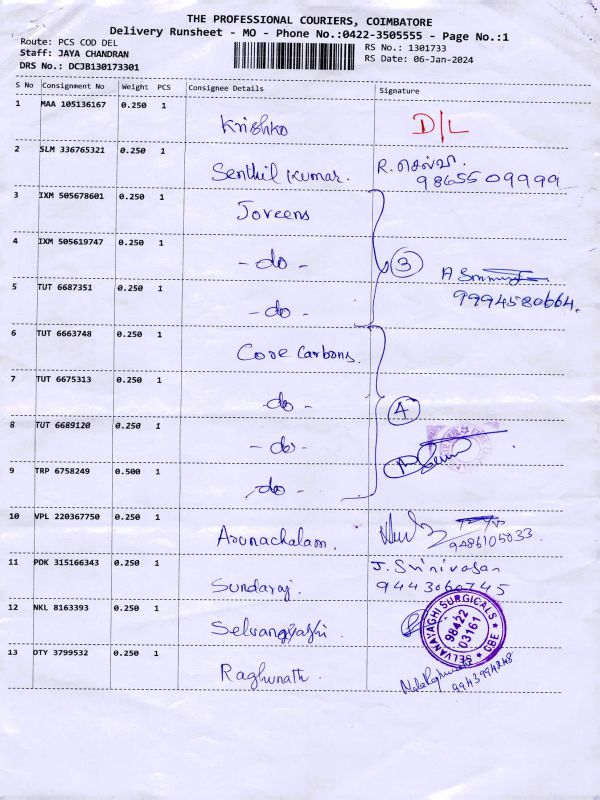 THE PROFESSIONAL COURIERS, COIMBATORE
Delivery Runsheet - MO - Phone No.:0422-3505555 - Page No.:1
Route: PCS COD DEL
RS No.: 1301733
Staff: JAYA CHANDRAN
RS Date: 06-Jan-2024
DRS No.: DCJB130173301
S No Consignment No Weight PCS Consignee Details Signature
1 MAA 105136167 0.250 1
Krishko D/L
2 SLM 336765321 0.250 1
Senthil Kumar. R. செல்வி. 9865509999
3 IXM 505678601 0.250 1
Joveens
4 IXM 505619747 0.250 1
- do - 3
5 TUT 6687351 0.250 1
- do - 9994580664.
6 TUT 6663748 0.250 1
Core Carbons.
7 TUT 6675313 0.250 1
- do - 4
8 TUT 6689120 0.250 1
- do -
9 TRP 6758249 0.500 1
- do -
10 VPL 220367750 0.250 1
Arunachalam. 9486105033
11 PDK 315166343 0.250 1 J. Srinivasan
Sundaraj. 9443060745
12 NKL 8163393 0.250 1
Selvanayaghi
SELVANAYAGHI SURGICALS * CBE *
98422
03161
13 OTY 3799532 0.250 1
Raghunath. 9943994248